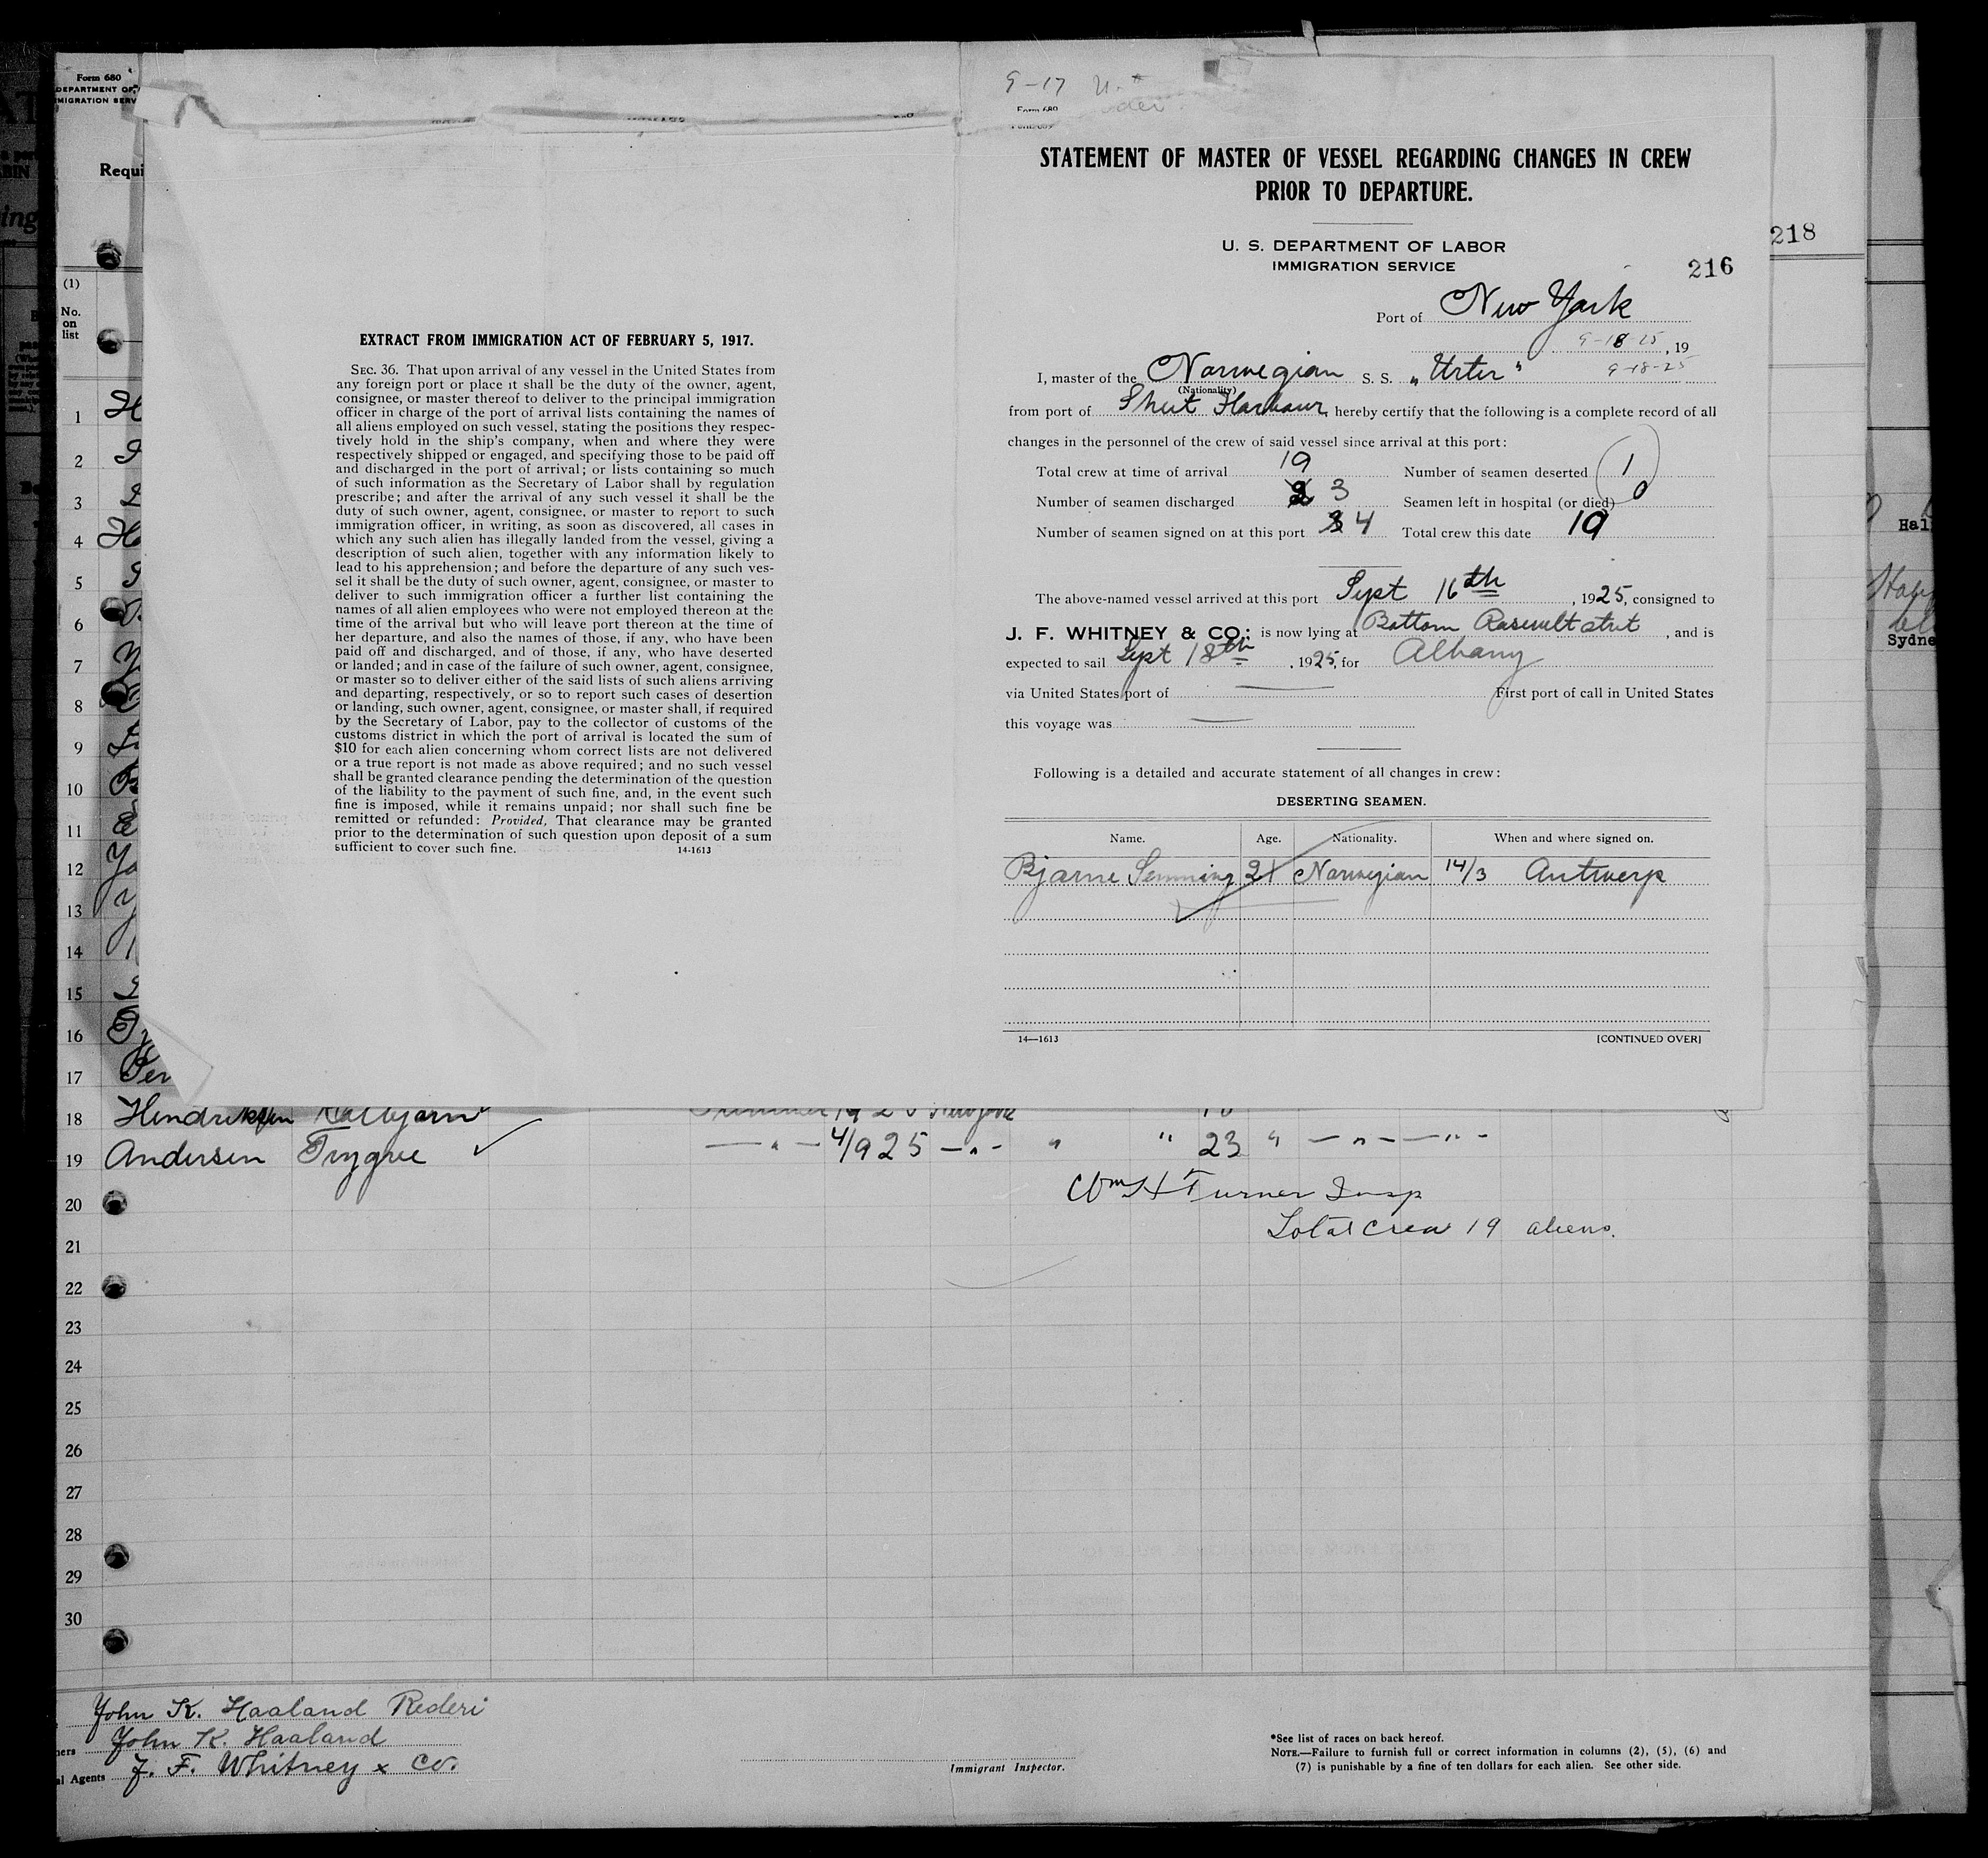 Form 680
DEPARTMENT OF
MIGRATION SERV
Requi
(1)
No.
on
list
EXTRACT FROM IMMIGRATION ACT OF FEBRUARY 5, 1917.
SEC. 36. That upon arrival of any vessel in the United States from
any foreign port or place it shall be the duty of the owner, agent,
consignee, or master thereof to deliver to the principal immigration
officer in charge of the port of arrival lists containing the names of
all aliens employed on such vessel, stating the positions they respec-
tively hold in the ship's company, when and where they were
respectively shipped or engaged, and specifying those to be paid off
and discharged in the port of arrival; or lists containing so much
of such information as the Secretary of Labor shall by regulation
prescribe; and after the arrival of any such vessel it shall be the
duty of such owner, agent, consignee, or master to report to such
immigration officer, in writing, as soon as discovered, all cases in
which any such alien has illegally landed from the vessel, giving a
description of such alien, together with any information likely to
lead to his apprehension; and before the departure of any such ves-
sel it shall be the duty of such owner, agent, consignee, or master to
deliver to such immigration officer a further list containing the
names of all alien employees who were not employed thereon at the
time of the arrival but who will leave port thereon at the time of
her departure, and also the names of those, if any, who have been
paid off and discharged, and of those, if any, who have deserted
or landed; and in case of the failure of such owner, agent, consignee,
or master so to deliver either of the said lists of such aliens arriving
and departing, respectively, or so to report such cases of desertion
or landing, such owner, agent, consignee, or master shall, if required
by the Secretary of Labor, pay to the collector of customs of the
customs district in which the port of arrival is located the sum of
$10 for each alien concerning whom correct lists are not delivered
or a true report is not made as above required; and no such vessel
shall be granted clearance pending the determination of the question
of the liability to the payment of such fine, and, in the event such
fine is imposed, while it remains unpaid; nor shall such fine be
remitted or refunded: Provided, That clearance may be granted
prior to the determination of such question upon deposit of a sum
sufficient to cover such fine. 14-1613
9-17
Form 680
STATEMENT OF MASTER OF VESSEL REGARDING CHANGES IN CREW
PRIOR TO DEPARTURE.
U. S. DEPARTMENT OF LABOR
IMMIGRATION SERVICE
216
218
Port of New York
9-18-25, 19
I, master of the Norwegian S. S. "Urter" 9-18-25
(Nationality)
from port of Sheet Harbour, hereby certify that the following is a complete record of all
changes in the personnel of the crew of said vessel since arrival at this port:
Total crew at time of arrival 19 Number of seamen deserted 1
Number of seamen discharged 3 Seamen left in hospital (or died) 0
Number of seamen signed on at this port 4 Total crew this date 19
The above-named vessel arrived at this port Sept 16th, 1925, consigned to
J. F. WHITNEY & CO.; is now lying at Bottom Roseveltstret, and is
expected to sail Sept 18th, 1925, for Albany
via United States port of — First port of call in United States
this voyage was —
Following is a detailed and accurate statement of all changes in crew:
DESERTING SEAMEN.
Name. Age. Nationality. When and where signed on.
Bjarne Semming 21 Norwegian 14/3 Antwerp
14—1613 [CONTINUED OVER]
Hal
Sydne
1
2
3
4
5
6
7
8
9
10
11
12
13
14
15
16
17
18 Hendriksen
19 Andersen Trygve 4/9 25 " " 23 "
20 Wm H Turner Insp
21 Total Crew 19 aliens.
22
23
24
25
26
27
28
29
30
John K. Haaland Rederi
ners John K. Haaland
al Agents J. F. Whitney & Co.
Immigrant Inspector.
*See list of races on back hereof.
NOTE.—Failure to furnish full or correct information in columns (2), (5), (6) and
(7) is punishable by a fine of ten dollars for each alien. See other side.